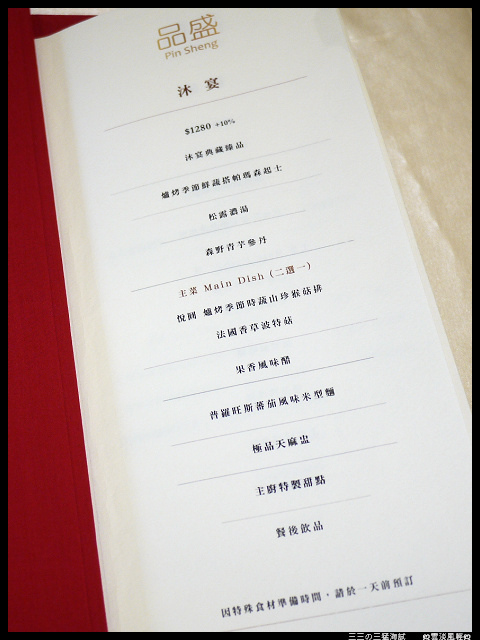 品盛
Pin Sheng
沐宴
$1280 +10%
沐宴典藏臻品
爐烤季節鮮蔬搭帕瑪森起士
松露濃湯
森野青芋參丹
主菜 Main Dish (二選一)
悅圓 爐烤季節時蔬山珍猴菇排
法國香草波特菇
果香風味醋
普羅旺斯蕃茄風味米型麵
極品天麻盅
主廚特製甜點
餐後飲品
因特殊食材準備時間，請於一天前預訂
三三の三猛海賊
雲淡風輕